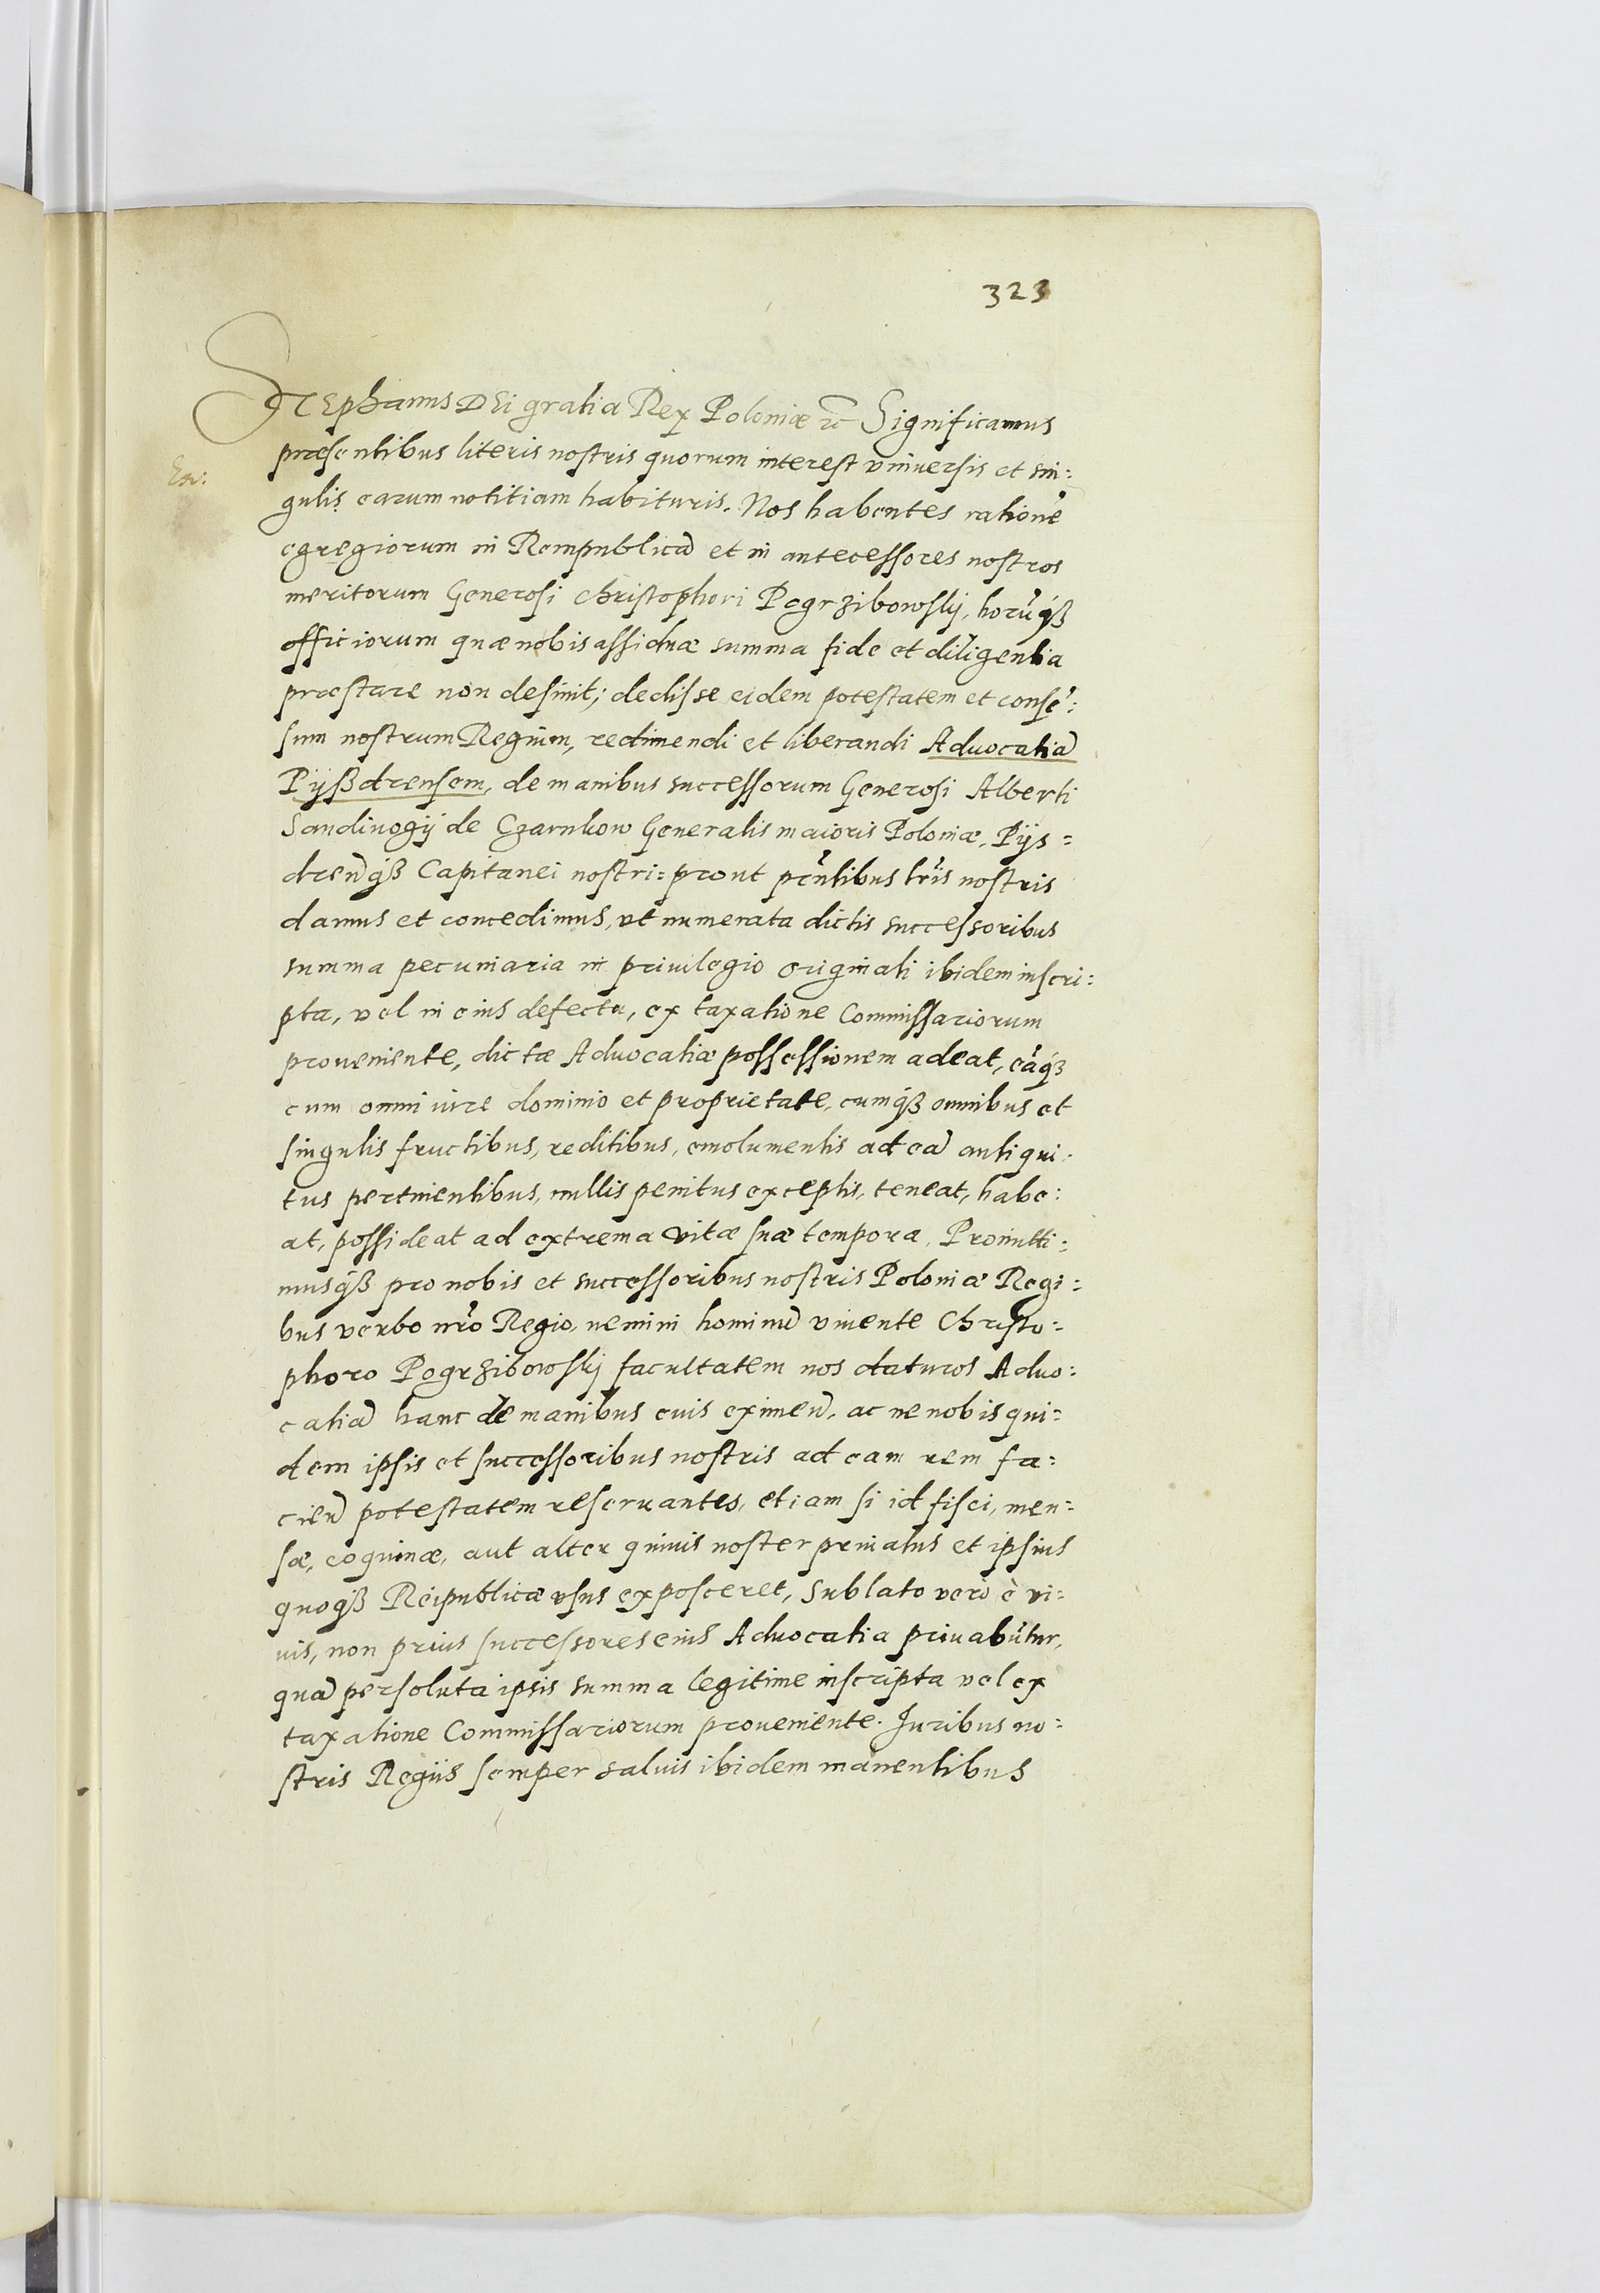 323
Stephanus DEi gratia Rex Poloniæ &c Significamus
præsentibus literis nostris quorum interest vniuersis et sin:
Ex:
gulis earum notitiam habituris. Nos habentes rationē
egregiorum in Rempublicā et in antecessores nostros
meritorum Generosi Christophori Pogrzibowskij, horūqȝ
officiorum quæ nobis assiduæ summa fide et diligentia
præstare non desinit; dedisse eidem potestatem et consē:
sum nostrum Regium, redimendi et liberandi Aduocatiā
Pijßdrensem, de manibus successorum Generosi Alberti
Sandiuogij de Czarnkow Generalis maioris Poloniæ, Pijs=
dren̄qȝ Capitanei nostri: prout pn̄tibus lr̄is nostris
damus et concedimus, vt numerata dictis successoribus
summa pecuniaria in priuilegio originali ibidem inscri:
pta, vel in eius defectu, ex taxatione Commissariorum
proueniente, dictæ Aduocatiæ possessionem adeat, eāqȝ
cum omni iure dominio et proprietate, cumqȝ omnibus et
singulis fructibus, reditibus, emolumentis ad eā antiqui:
tus pertinentibus, nullis penitus exceptis, teneat, habe:
at, possideat ad extrema vitæ suæ tempora, Promitti:
musqȝ pro nobis et successoribus nostris Poloniæ Regi:
bus verbo nr̄o Regio, nemini hominū viuente Christo:
phoro Pogrzibowskij facultatem nos daturos Aduo:
catiā hanc de manibus euis eximen̄, ac ne nobis qui=
dem ipsis et successoribus nostris ad eam rem fa:
cien̄ potestatem reseruantes, etiam si id fisci, men=
sæ, coquinæ, aut alter quiuis noster priuatus et ipsius
quoqȝ Reipublicæ vsus exposceret, Sublato verò è vi:
uis, non prius successores eius Aduocatia priuabūtur,
quā persoluta ipsis summa legitime inscripta vel ex
taxatione Commissariorum proueniente. Juribus no:
stris Regiis semper saluis ibidem manentibus